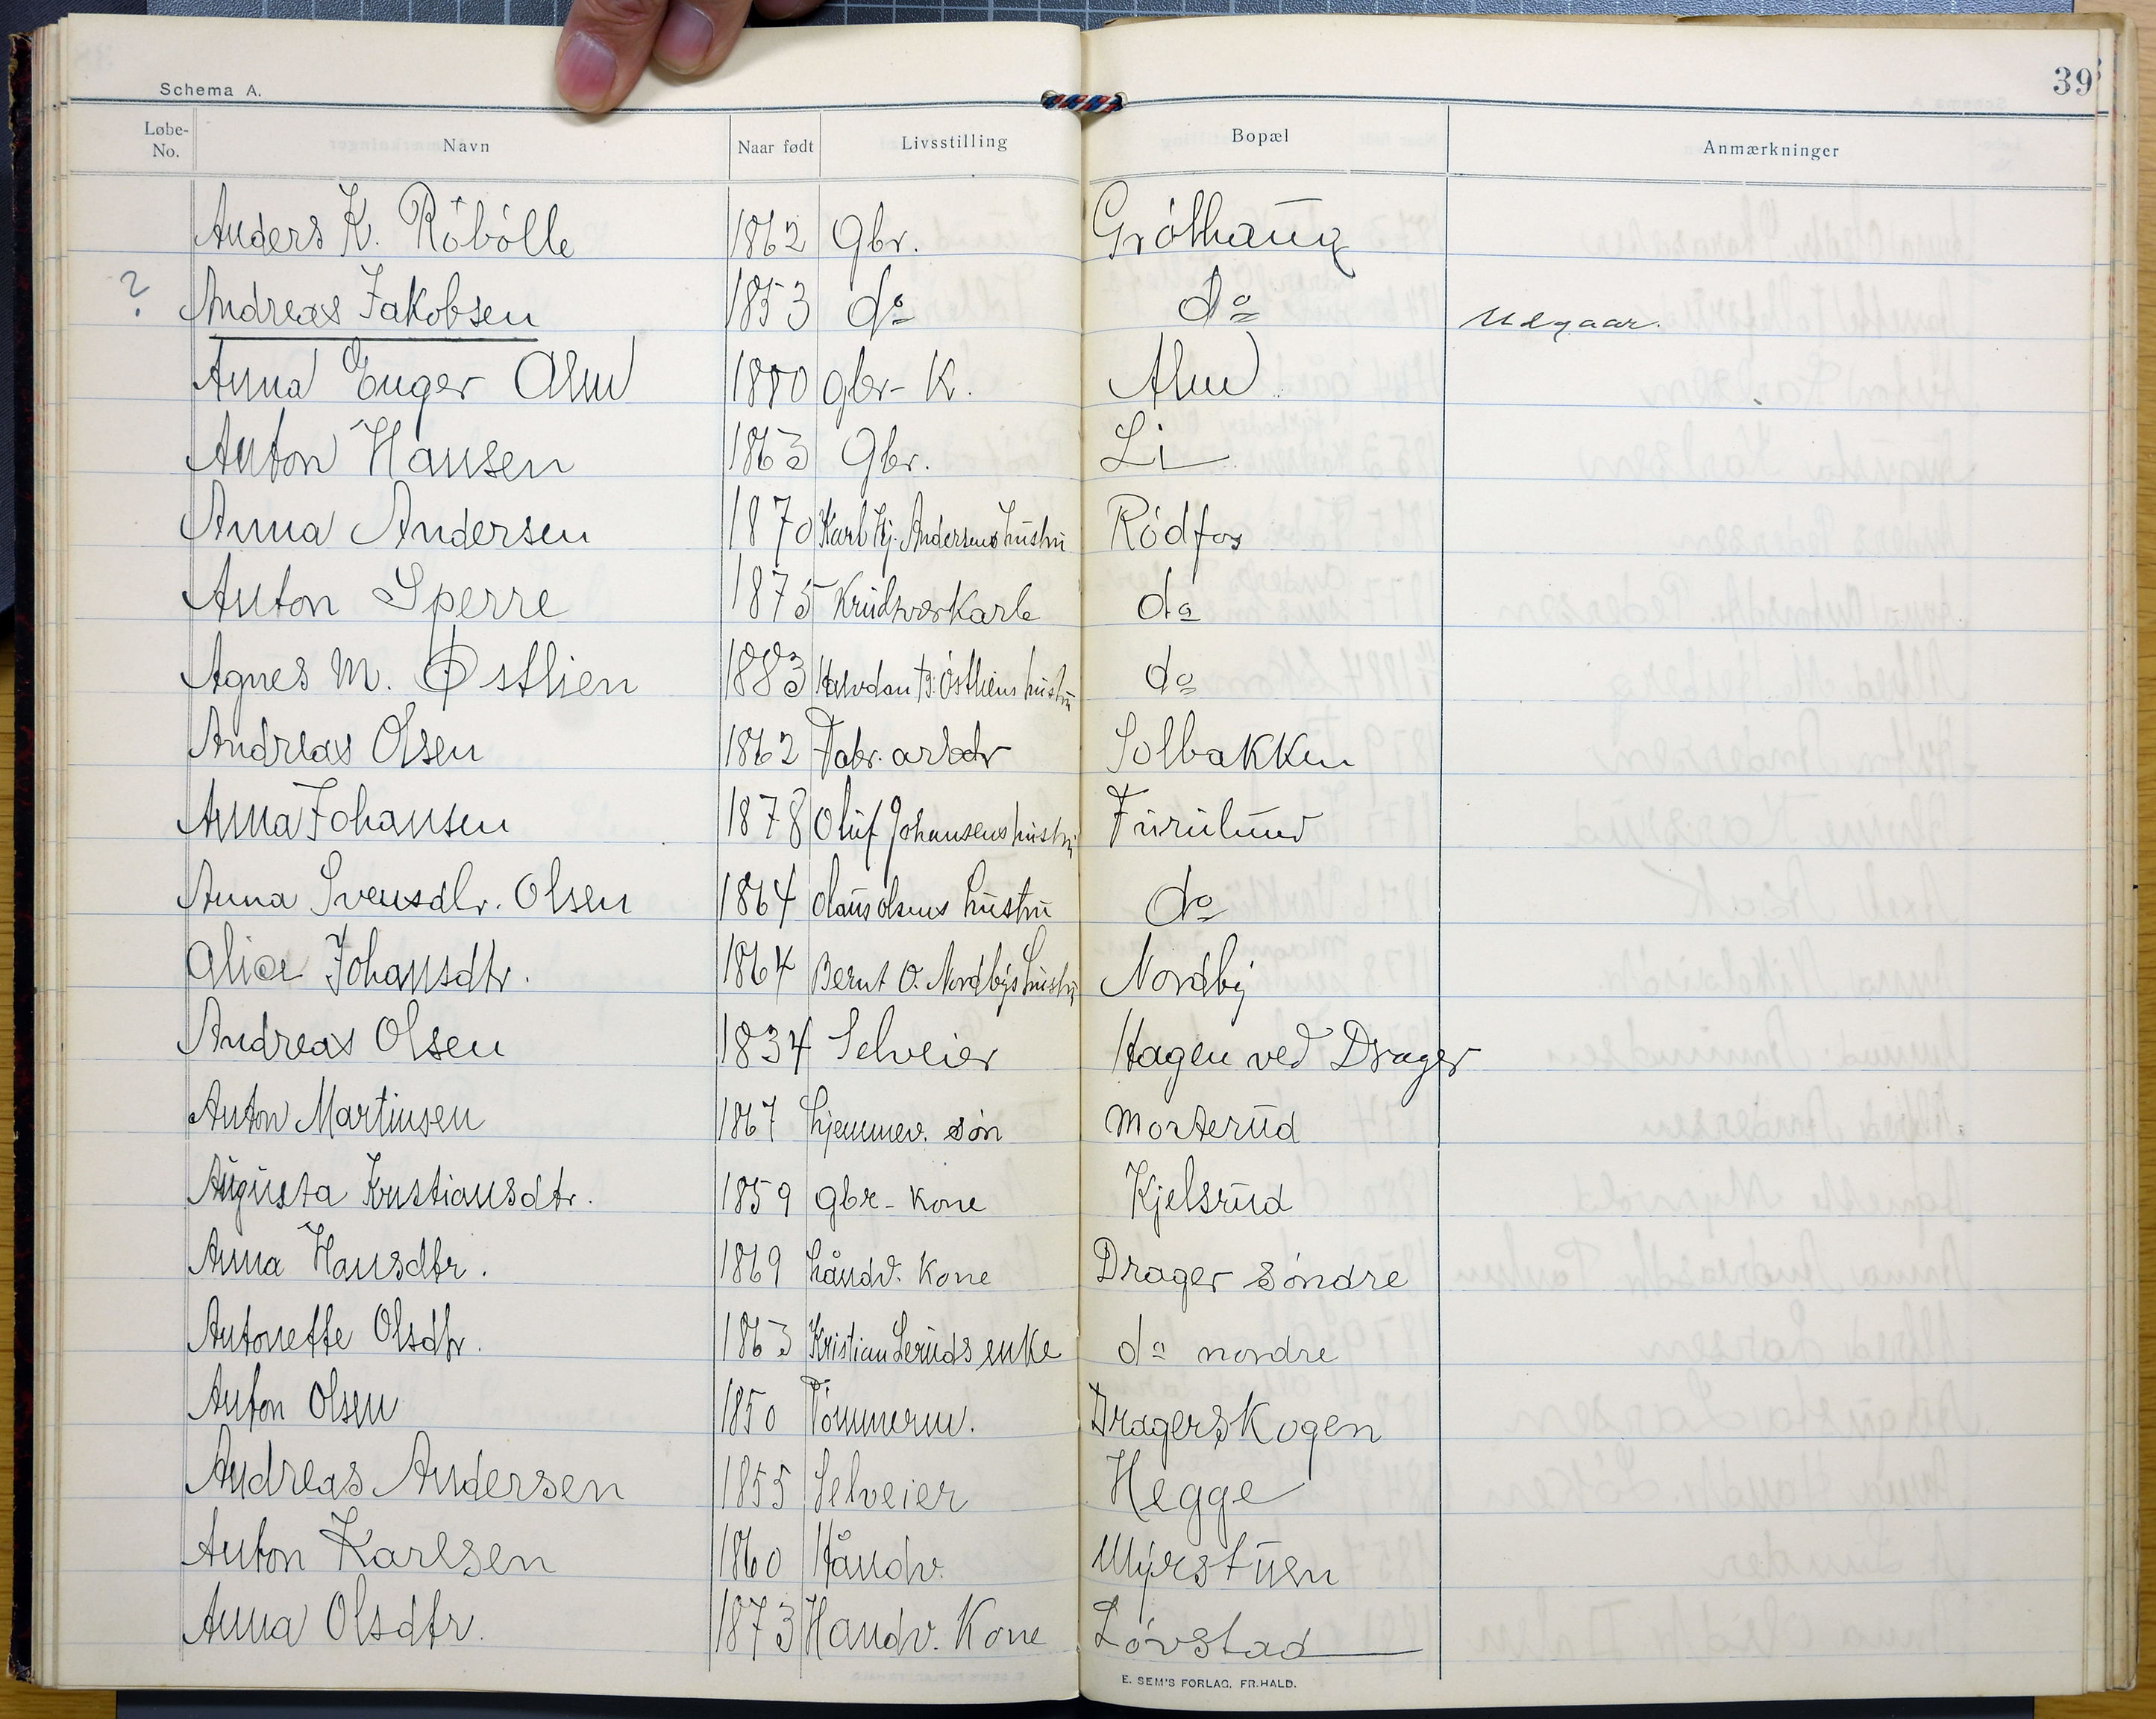 39
Schema A.
Løbe-No. Navn Naar født Livsstilling Bopæl Anmærkninger
Anders K. Röbölle 1862 Gbr. Gróthaug
? Andreas Jakobsen 1853 do do Udgaar.
Anna Enger Alm 1880 gbr-k. Alm
Anton Hansen 1863 Gbr. Li
Anna Andersen 1870 Karl Hj. Andersens hustru Ródfos
Anton Sperre 1875 Krudtværkarb do
Agnes M. Østlien 1883 Halvdan B. Östliens hustru do
Andreas Olsen 1862 Fabr. arbdr Solbakken
Anna Johansen 1878 Oluf Johansens hustru Furulund
Anna Svensdtr. Olsen 1864 Olaus Olsens hustru do
Alice Johansdtr. 1864 Bernt O. Nordbys hustru Nordby
Andreas Olsen 1834 Selveier Hagen ved Drager
Anton Martinsen 1867 hjemmev. són Morterud
Augusta Kristiansdtr. 1859 gbr- kone Kjelsrud
Anna Hansdtr. 1869 håndv. kone Drager sóndre
Antonette Olsdtr. 1863 Kristian Leruds enke do nordre
Anton Olsen 1850 Tömmerm. Dragerskogen
Andreas Andersen 1855 Selveier Hegge
Anton Karlsen 1860 Håndv. Myrstuen
Anna Olsdtr. 1873 Handv. Kone Lóvstad
E. SEM'S FORLAG, FR.HALD.